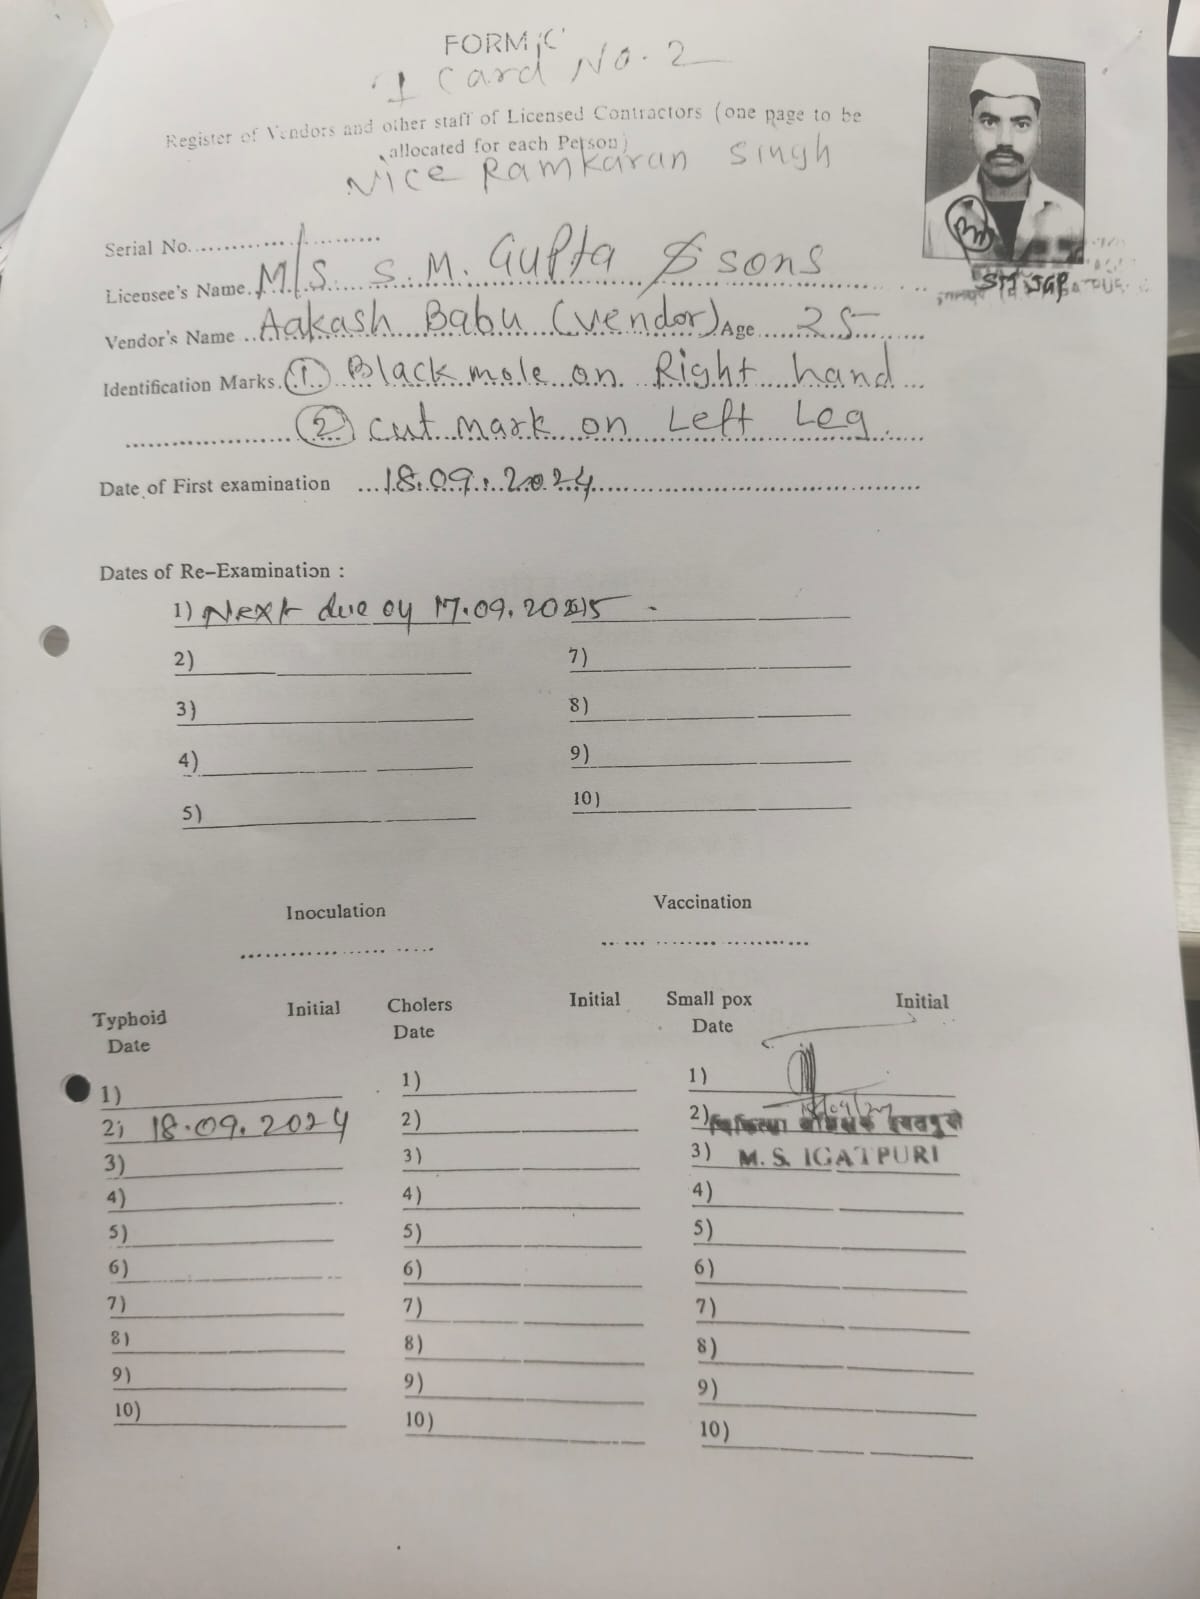 FORM 'C'
I Card No. 2
Register of Vendors and other staff of Licensed Contractors (one page to be
allocated for each Person)
Nice Ramkaran Singh
Serial No. ....................
Licensee's Name. M/S. S. M. Gupta & sons
Vendor's Name .. Aakash Babu (vendor) Age ..... 25
Identification Marks. (1) Black mole on Right hand
(2) cut mark on Left Leg.
Date of First examination ... 18.09.2024
Dates of Re-Examination :
1) Next due on 17.09.2025
2) 7)
3) 8)
4) 9)
5) 10)
Inoculation Vaccination
Typhoid Initial Cholers Initial Small pox Initial
Date Date Date
1) 1) 1)
2) 18.09.2024 2) 2)
3) 3) 3) M. S. IGATPURI
4) 4) 4)
5) 5) 5)
6) 6) 6)
7) 7) 7)
8) 8) 8)
9) 9) 9)
10) 10) 10)